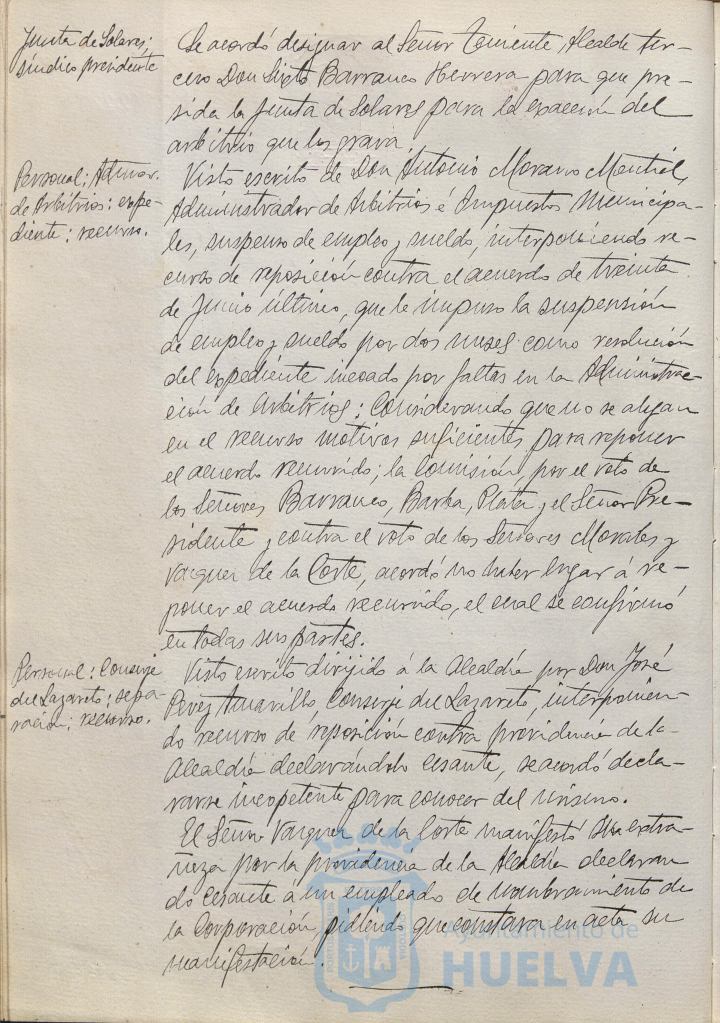 Junta de Solares;
síndico presidente
Se acordó designar al Señor Teniente Alcalde ter-
cero Don Sixto Barranco Herrera para que pre-
sida la Junta de Solares para la exacción del
arbitrio que los grava.
Personal: Admor.
de Arbitrios: expe-
diente: recurso.
Visto escrito de Don Antonio Morano Montiel,
Administrador de Arbitrios é Impuestos Municipa-
les, suspenso de empleo y sueldo, interponiendo re-
curso de reposición contra el acuerdo de treinta
de Junio último, que le impuso la suspensión
de empleo y sueldo por dos meses como resolución
del expediente incoado por faltas en la Administra-
ción de Arbitrios; Considerando que no se alegan
en el recurso motivos suficientes para reponer
el acuerdo recurrido; la Comisión, por el voto de
los Señores Barranco, Barba, Plata y el Señor Pre-
sidente y contra el voto de los Señores Morales y
Vazquez de la Corte, acordó no haber lugar á re-
poner el acuerdo recurrido, el cual se confirmó
en todas sus partes.
Personal: Conserje
del Lazareto; sepa-
ración: recurso.
Visto escrito dirijido á la Alcaldía por Don José
Perez Amarillo, Conserje del Lazareto, interponien-
do recurso de reposición contra providencia de la
Alcaldía declarándolo cesante, se acordó decla-
rarse incopetente para conocer del mismo.
El Señor Vazquez de la Corte manifestó su extra-
ñeza por la providencia de la Alcaldía declaran
do cesante á un empleado de nombramiento de
la Corporación, pidiendo que constara en acta su
manifestación.
Ayuntamiento de
HUELVA